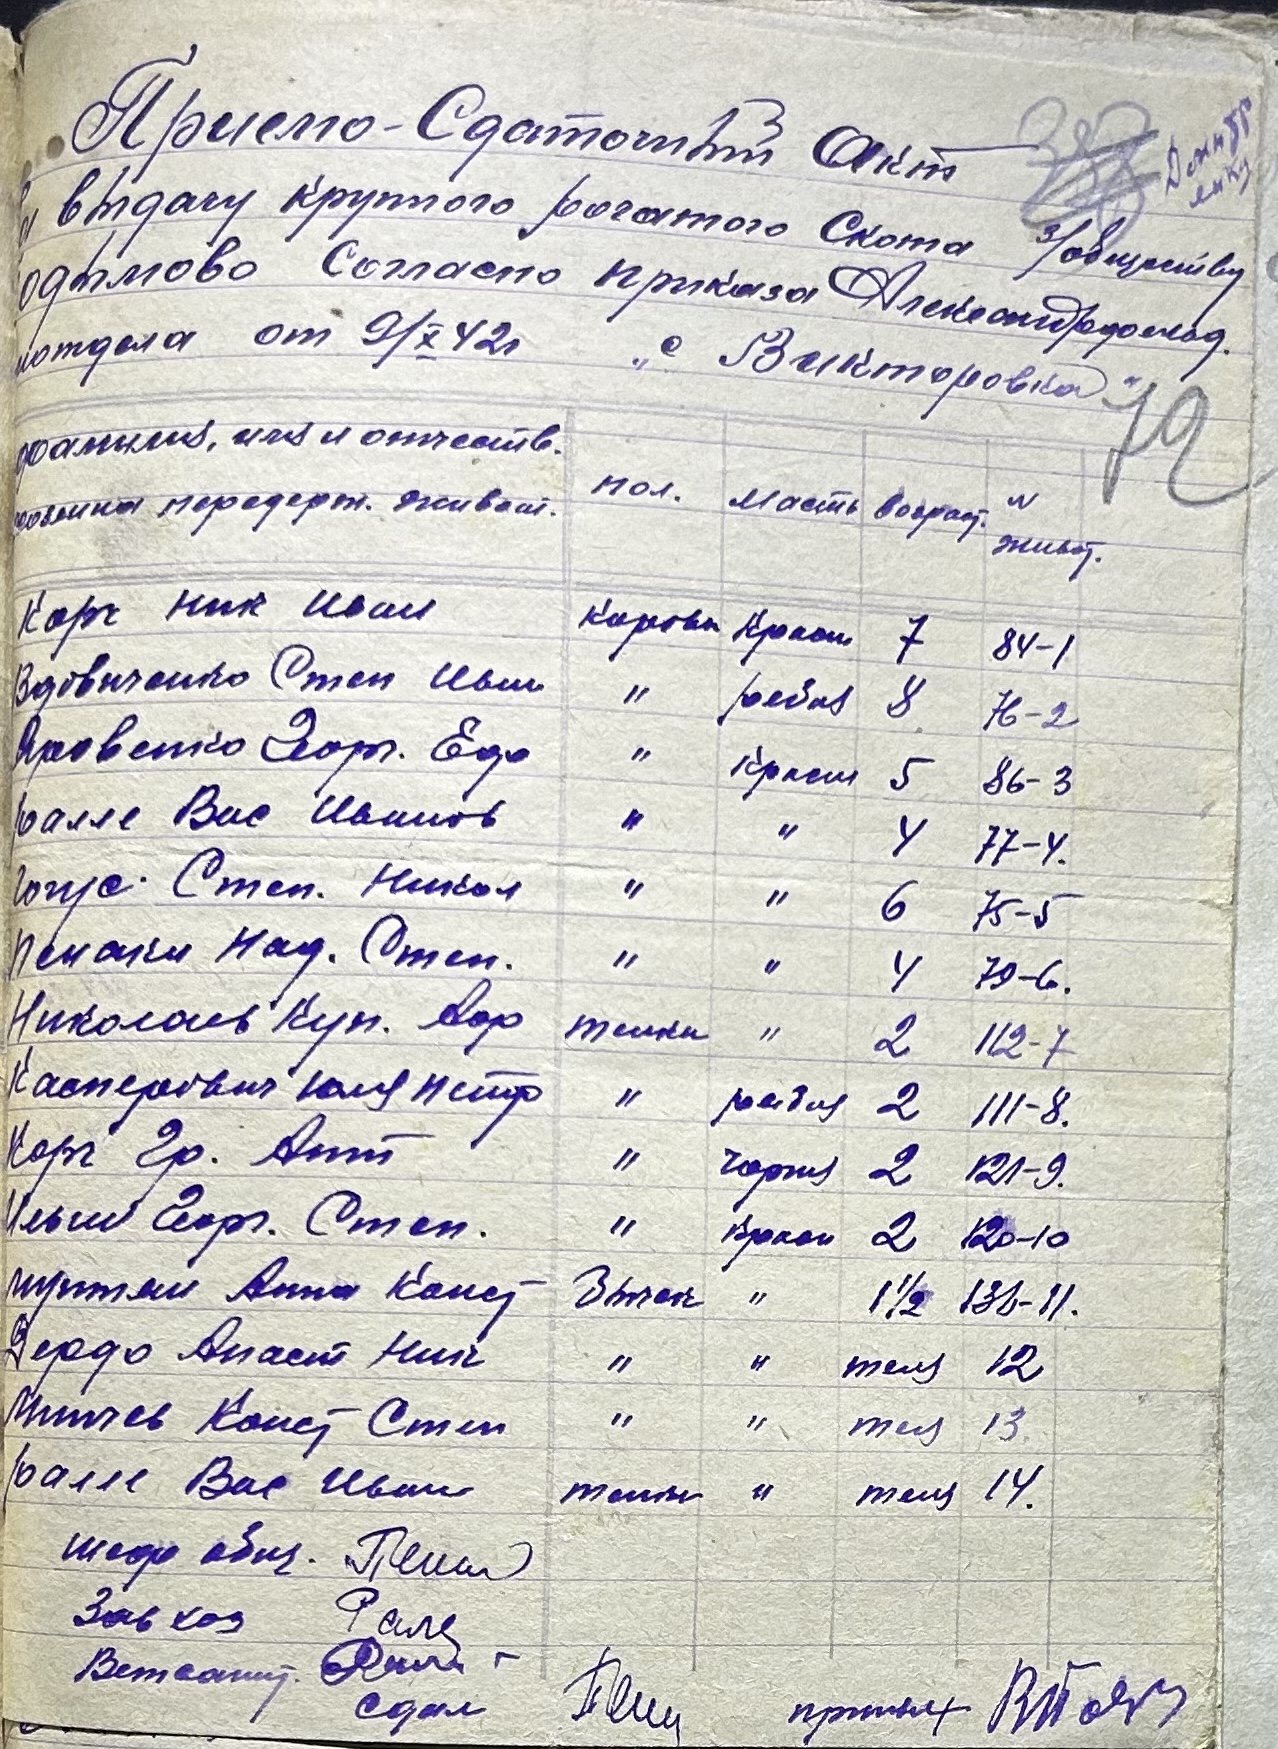 Приемо-Сдаточный Акт
На выдачу крупного рогатого Скота з/обществу
одымово Согласно приказа Александродольд.
отдела от 9/X 42г „с Викторовка"
72
фамилия, имя и отчеств. пол. Масть возраст. N живот.
передерж. живот.
Корч Ник Иван Коровы Красн 7 84-1
Вдовиченко Степ Иван " рябая 8 76-2
Яровенко Георг. Еф " Красн 5 86-3
Ралле Вас Иванов " " 4 77-4.
Степ. Никол " " 6 75-5
Пенаки Над. Степ. " " 4 79-6.
Николаев Кун. Аф телки " 2 112-7
Касперович Юлия Петр " рябая 2 111-8.
Корч Гр. Ант " чорная 2 121-9.
Ильин Георг. Степ. " Красн 2 120-10
Анна Конст Бычок " 1 1/2 136-11.
Дердо Анаст Ник " " теля 12
Минчев Конст Степ " " теля 13.
Ралле Вас Иван телки " теля 14.
шеф общ.
Завхоз Рале
Ветсанит.
Сдал принял